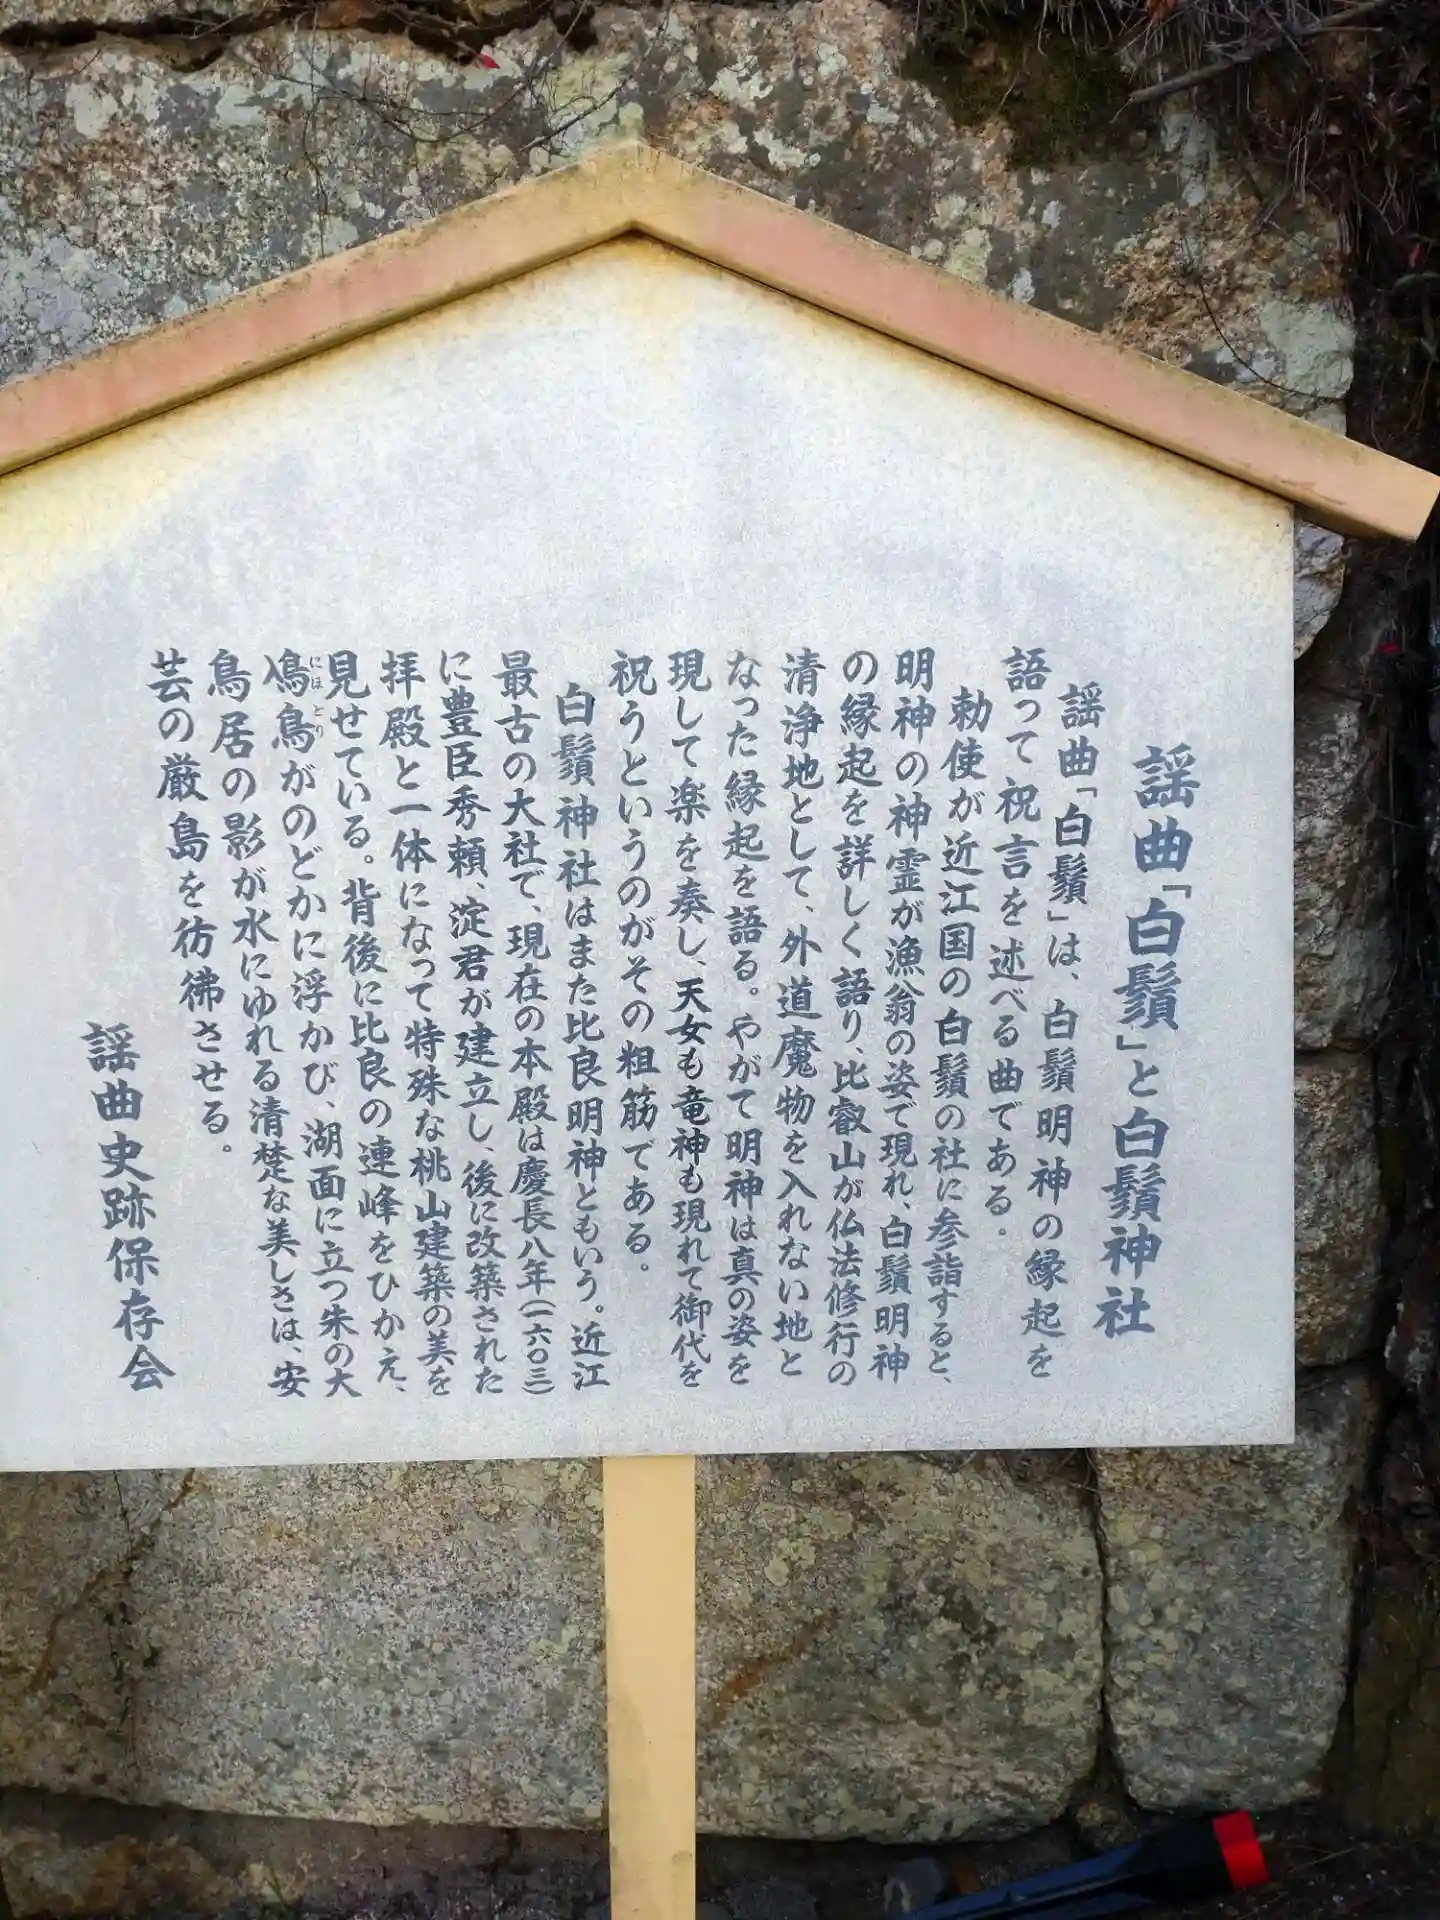 謡曲「白鬚」と白鬚神社
謡曲「白鬚」は、白鬚明神の縁起を
語って祝言を述べる曲である。
勅使が近江国の白鬚の社に参詣すると、
明神の神霊が漁翁の姿で現れ、白鬚明神
の縁起を詳しく語り、比叡山が仏法修行の
清浄地として、外道魔物を入れない地と
なった縁起を語る。やがて明神は真の姿を
現して楽を奏し、天女も竜神も現れて御代を
祝うというのがその粗筋である。
白鬚神社はまた比良明神ともいう。近江
最古の大社で、現在の本殿は慶長八年(一六〇三)
に豊臣秀頼、淀君が建立し、後に改築された
拝殿と一体になって特殊な桃山建築の美を
見せている。背後に比良の連峰をひかえ、
鳰鳥がのどかに浮かび、湖面に立つ朱の大
にほとり
鳥居の影が水にゆれる清楚な美しさは、安
芸の厳島を彷彿させる。
謡曲史跡保存会